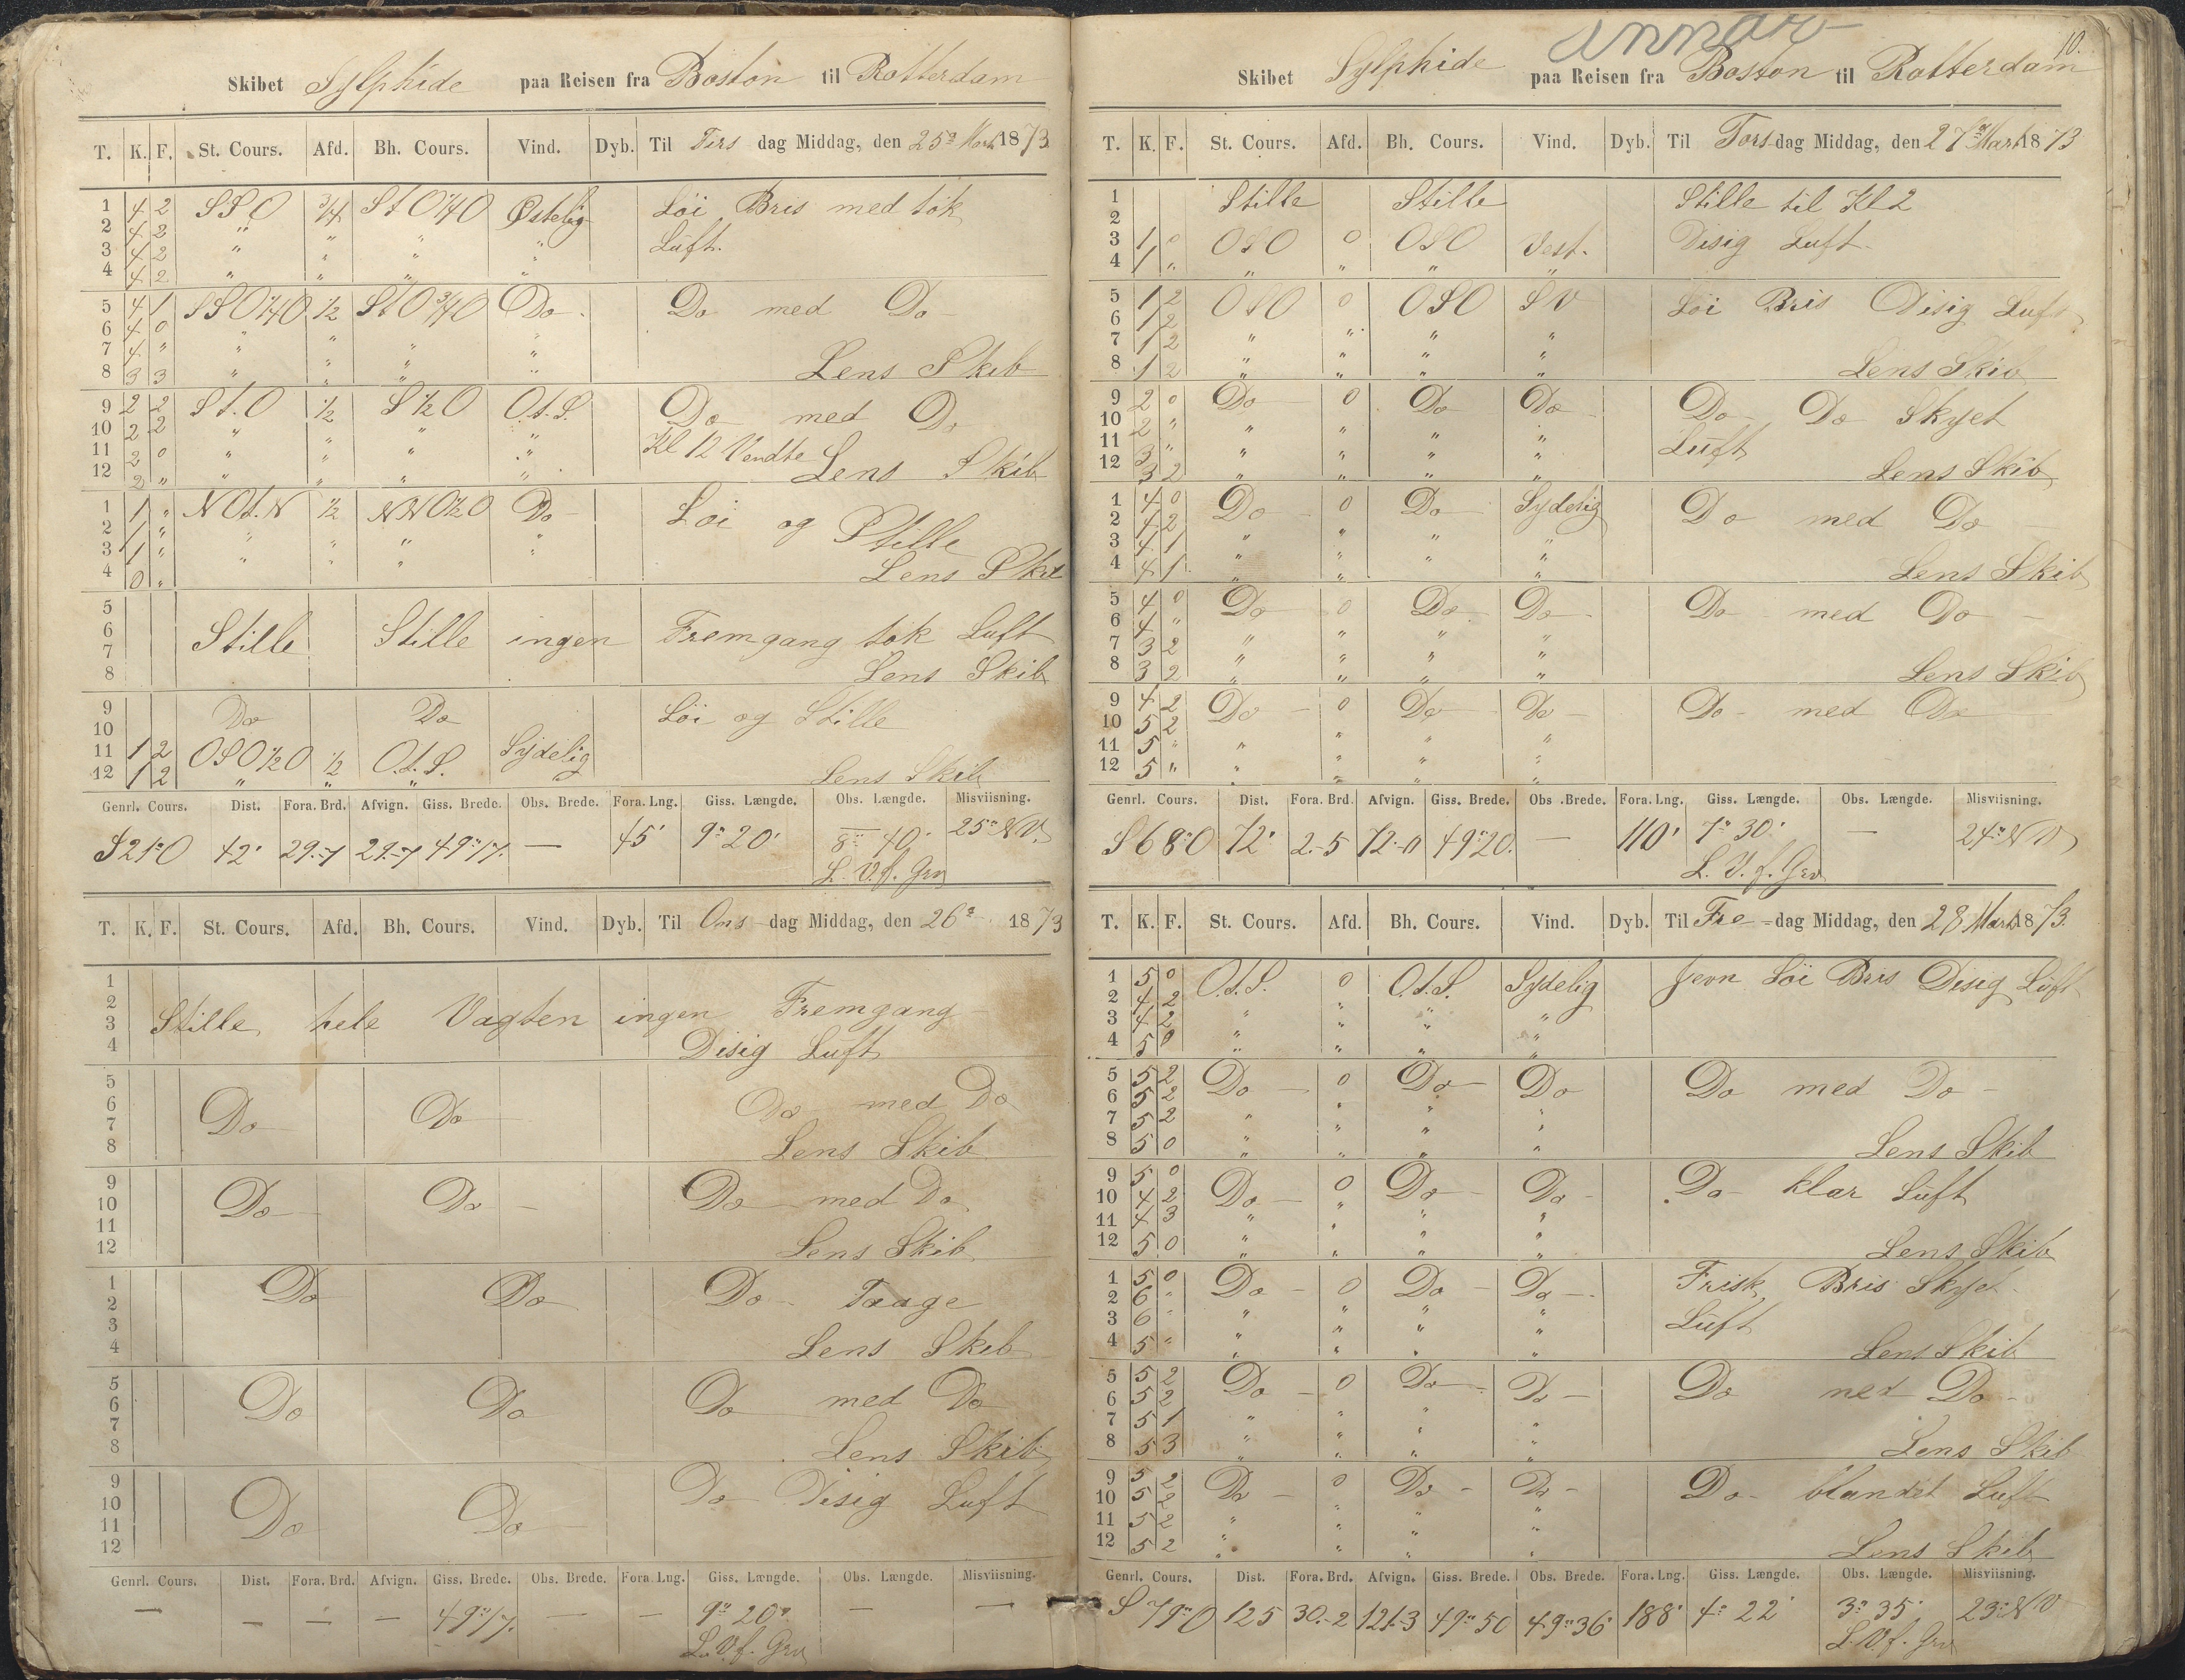 Skibet Sylphide paa Reisen fra Boston til Rotterdam
T. K. F. St. Cours. Afd. Bh. Cours. Vind. Dyb. Til Tirs dag Middag, den 25de Marts 1873
1 4 2 SSO 3/4 StO1/4O Østelig Löi Bris med tök
2 4 2 " " "
3 4 2 " " " " Luft.
4 4 2 " " " "
5 4 1 SSO1/4O 1/2 StO3/4O Do Do med Do
6 4 0 " " " "
7 4 " " " " "
8 3 3 " " " " Lens Skib
9 2 2 St.O 1/2 S1/2O O.t.S. Do med Do
10 2 2 " " " "
11 2 0 " " " " Kl 12 Vendte
12 2 " " " " " Lens Skib
1 1 " NOt.N 1/2 NNO1/2O Do Löi og Stille
2 1 " " " " "
3 1 " " " " "
4 0 " Lens Skib
5
6 Stille Stille ingen Fremgang tök Luft
7
8 Lens Skib
9 Do Do Löi og Stille
10
11 1 2 OSO1/2O 1/2 O.t.S. Sydelig
12 1 2 " " " Lens Skib
Genrl. Cours. Dist. Fora. Brd. Afvign. Giss. Brede. Obs. Brede. Fora. Lng. Giss. Længde. Obs. Længde. Misviisning.
S21°O 42' 29.-7 29.-7 49°17. — 45' 9° 20' 8° 40' 25° NV.
L. V. f. Grv
T. K. F. St. Cours. Afd. Bh. Cours. Vind. Dyb. Til Ons dag Middag, den 26de 1873
1
2
3 Stille hele Vagten ingen Fremgang
4 Disig Luft
5
6 Do Do Do med Do
7
8 Lens Skib
9
10 Do Do Do med Do
11
12 Lens Skib
1 Do Do Do Taage
2
3
4 Lens Skib
5
6 Do Do Do med Do
7
8 Lens Skib
9
10 Do Disig Luft
11 Do Do
12
Genrl. Cours. Dist. Fora. Brd. Afvign. Giss. Brede. Obs. Brede. Fora. Lng. Giss. Længde. Obs. Længde. Misviisning.
— — — — 49°17. — — 9° 20' — —
L. V. f. Grv
10.
Skibet Sylphide paa Reisen fra Boston til Rotterdam
T. K. F. St. Cours. Afd. Bh. Cours. Vind. Dyb. Til Tors dag Middag, den 27de Marts 1873
1 Stille Stille Stille til Kl 2
2
3 1 0 OSO 0 OSO Vest. Disig Luft
4 1 " " " " "
5 1 2 OSO 0 OSO SV Löi Bris Disig Luft
6 1 2
7 1 2 " " " "
8 1 2 " " " " Lens Skib
9 2 0 Do 0 Do Do Do Do Skyet
10 2 " " " " "
11 3 " " " " " Luft
12 3 2 " " " " Lens Skib
1 4 0 Do 0 Do Sydelig Do med Do
2 4 2
3 4 1 " " " "
4 4 1 " " " " Lens Skib
5 4 0 Do 0 Do Do Do med Do
6 4 "
7 3 2 " " " "
8 3 2 " " " " Lens Skib
9 4 2 Do 0 Do Do Do med Do
10 5 2
11 5 " " " " "
12 5 " " " " "
Genrl. Cours. Dist. Fora. Brd. Afvign. Giss. Brede. Obs. Brede. Fora. Lng. Giss. Længde. Obs. Længde. Misviisning.
S68°O 72' 2.-5 72.-0 49°20. — 110' 7° 30' — 24° NV
L. V. f. Grv
T. K. F. St. Cours. Afd. Bh. Cours. Vind. Dyb. Til Fre dag Middag, den 28 Marts 1873.
1 5 0 O.t.S. 0 O.t.S. Sydelig Jevn Löi Bris Disig Luft
2 4 2
3 4 2 " " " "
4 5 0 " " " "
5 5 2 Do 0 Do Do Do med Do
6 5 2
7 5 2 " " " "
8 5 0 " " " " Lens Skib
9 5 0 Do 0 Do Do Do klar Luft
10 4 2
11 4 3 " " " "
12 5 0 " " " " Lens Skib
1 5 0 Do 0 Do Do Frisk Bris Skyet
2 6 "
3 6 " " " " " Luft
4 5 " " " " " Lens Skib
5 5 2 Do 0 Do Do Do med Do
6 5 2
7 5 1 " " " "
8 5 3 " " " " Lens Skib
9 5 2 Do 0 Do Do Do blandet Luft
10 5 2
11 5 2 " " " "
12 5 2 " " " " Lens Skib
Genrl. Cours. Dist. Fora. Brd. Afvign. Giss. Brede. Obs. Brede. Fora. Lng. Giss. Længde. Obs. Længde. Misviisning.
S79°O 125 30.-2 121.-3 49°50 49°36' 188' 4° 22' 3° 35' 23° NV
L. V. f. Grv